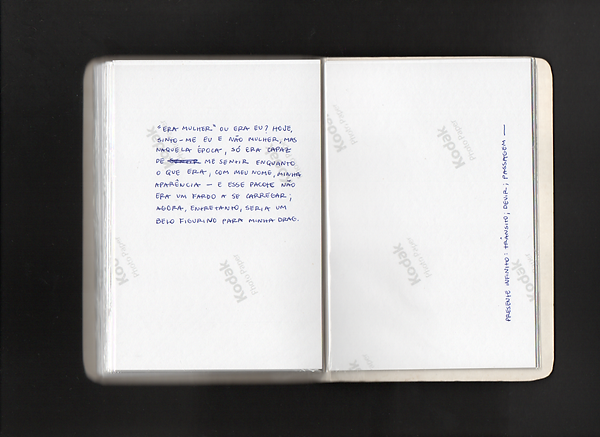 "ERA MULHER" OU ERA EU? HOJE,
SINTO-ME EU E NÃO MULHER, MAS
NAQUELA ÉPOCA, SÓ ERA CAPAZ
DE ME SENTIR ENQUANTO
O QUE ERA, COM MEU NOME, MINHA
APARÊNCIA — E ESSE PACOTE NÃO
ERA UM FARDO A SE CARREGAR;
AGORA, ENTRETANTO, SERIA UM
BELO FIGURINO PARA MINHA DRAG.
Kodak
Photo Paper
Kodak
Photo Paper
PRESENTE INFINITO: TRÂNSITO; DEVIR; PASSAGEM —
Photo Paper
Kodak
Photo Paper
Kodak
Photo Paper